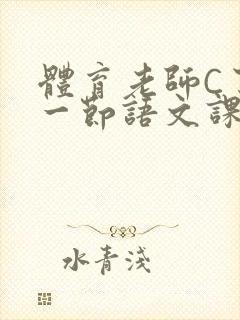 體育老師C
一節語文課
水青淺